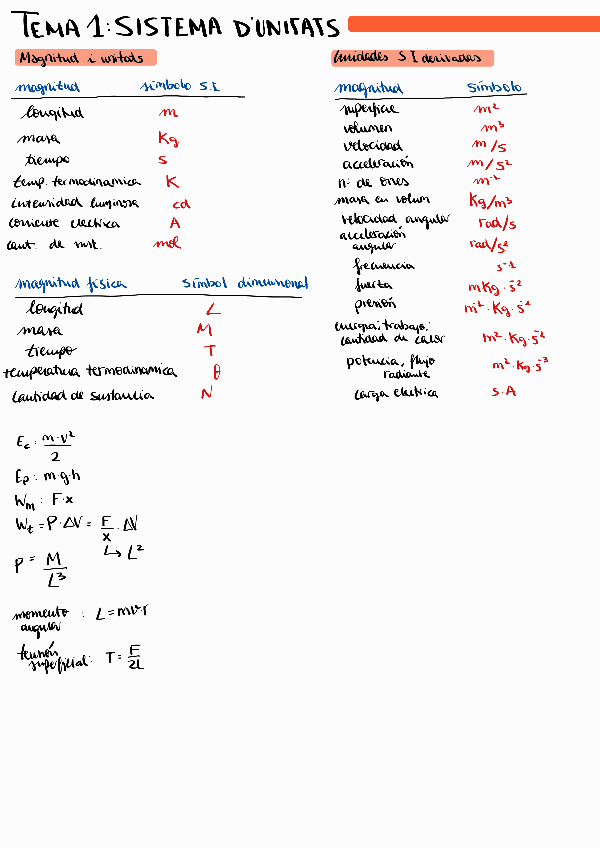 TEMA 1: SISTEMA D'UNITATS
Magnitud i unitats
magnitud símbolo S.I
longitud m
masa Kg
tiempo s
temp. termodinamica K
intensidad luminosa cd
corriente electrica A
cant. de sust. mol
magnitud física símbol dimensional
longitud L
masa M
tiempo T
temperatura termodinamica θ
cantidad de sustancia N
Ec: m·v²/2
Ep: m·g·h
Wm: F·x
Wt = P·ΔV = F/x · ΔV
↳ L²
P = M/L³
momento : L = mvr
angular
tensión
superficial: T = F/2L
Unidades S.I derivadas
magnitud símbolo
superficie m²
volumen m³
velocidad m/s
acceleración m/s²
nº de ones m⁻¹
masa en volum Kg/m³
velocidad angular rad/s
acceleración
angular rad/s²
frecuencia s⁻¹
fuerza mKg·s⁻²
presión m⁻¹·Kg·s⁻²
energia; trabajo;
cantidad de calor m²·Kg·s⁻²
potencia, flujo
radiante m²·Kg·s⁻³
carga electrica s·A